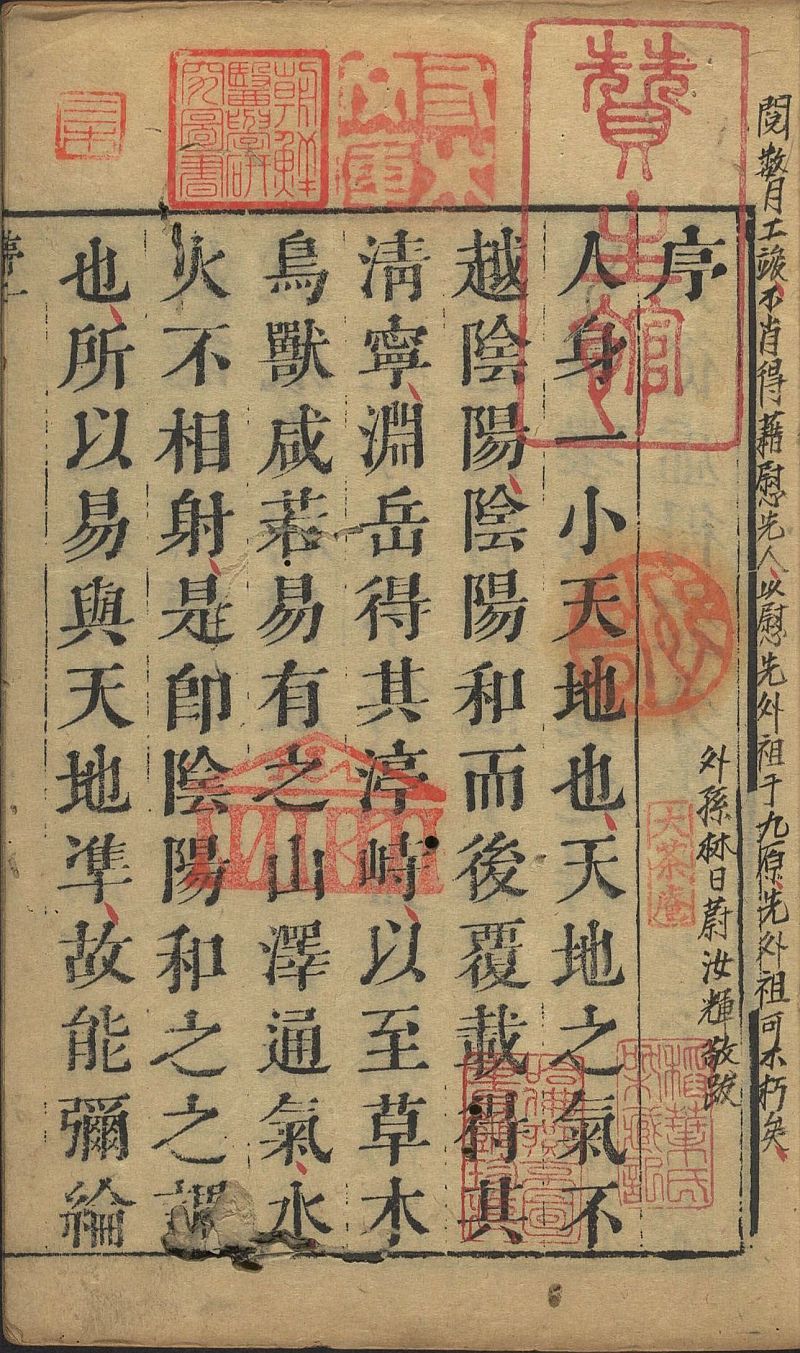 閱數月工竣不肖得藉慰先人以慰先外祖于九原先外祖可不朽矣
外孫林日蔚汝輝敬跋
序
人身一小天地也天地之氣不
越陰陽陰陽和而後覆載得其
淸寧淵岳得其渟峙以至草木
鳥獸咸若易有之山澤通氣水
火不相射是卽陰陽和之之謂
也所以易與天地準故能彌綸
序一
贊生館
朝鮮醫學研究圖書
三木
天荼庵